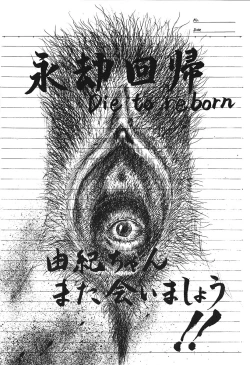 No.
Date
永却回帰
Die to reborn
由紀ちゃん
また会いましょう
!!